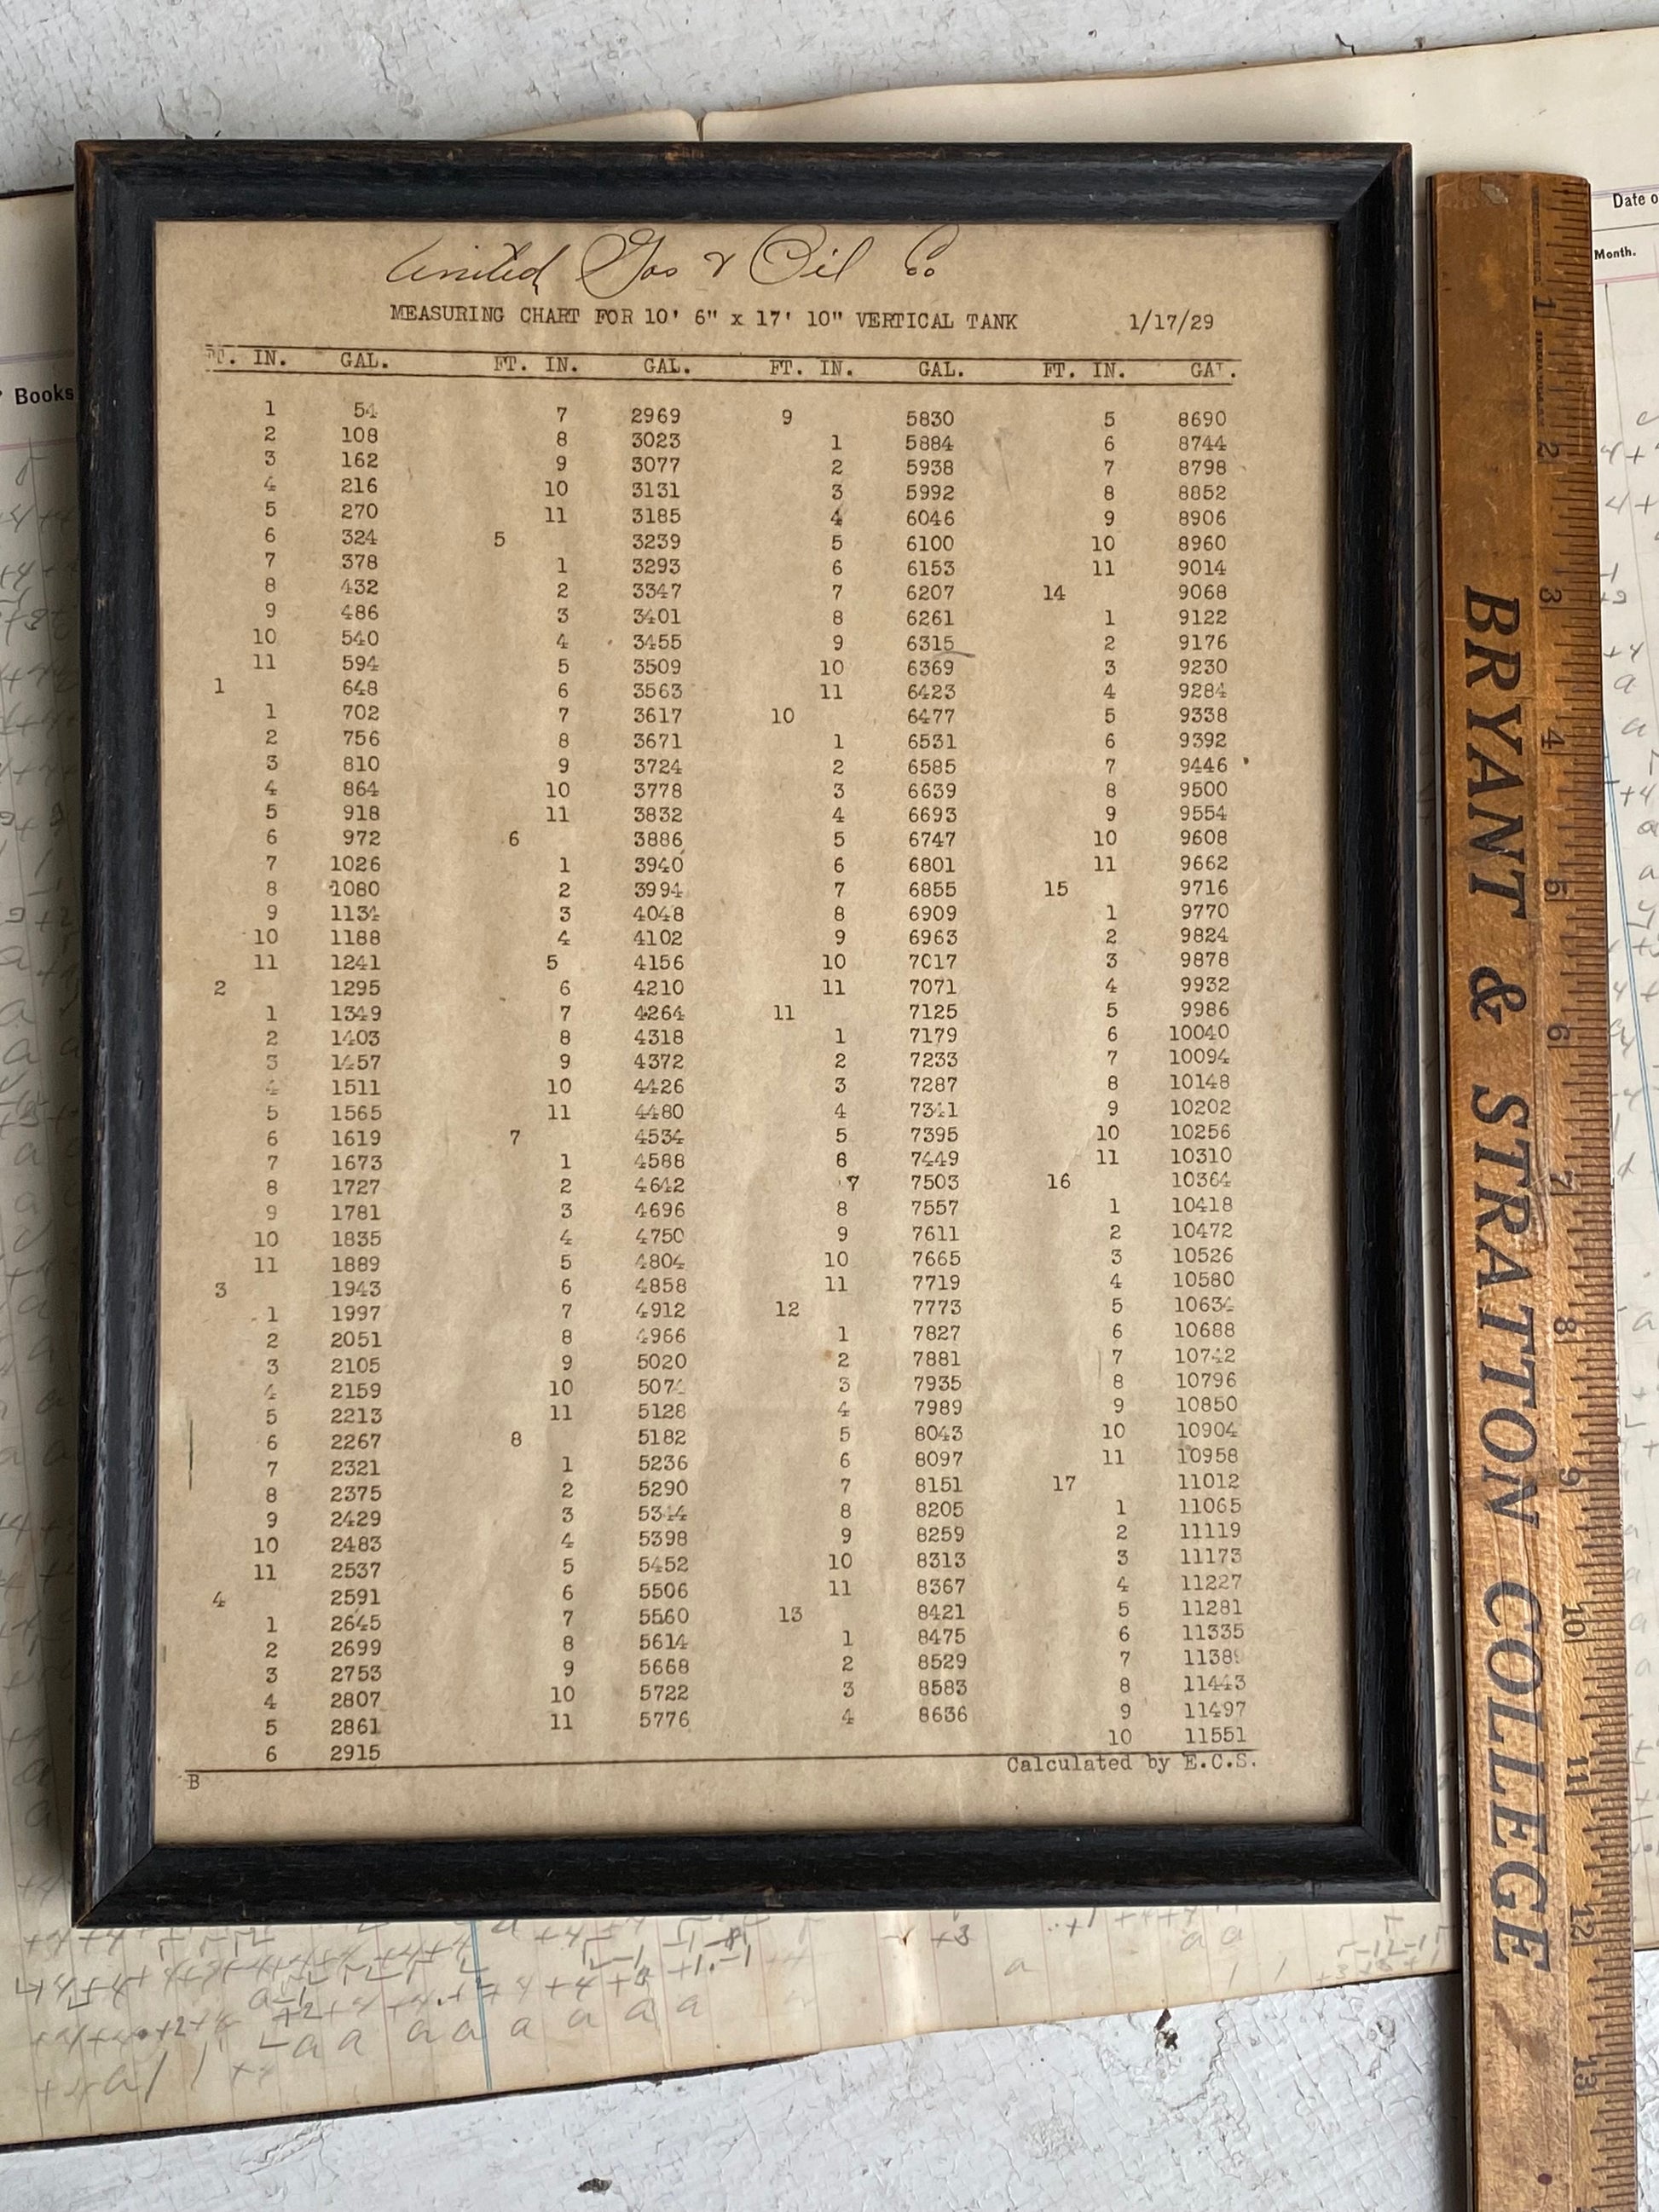 United Gas & Oil Co
MEASURING CHART FOR 10' 6" x 17' 10" VERTICAL TANK 1/17/29
FT. IN. GAL. FT. IN. GAL. FT. IN. GAL. FT. IN. GAL.
1 54 7 2969 9 5830 5 8690
2 108 8 3023 1 5884 6 8744
3 162 9 3077 2 5938 7 8798
4 216 10 3131 3 5992 8 8852
5 270 11 3185 4 6046 9 8906
6 324 5 3239 5 6100 10 8960
7 378 1 3293 6 6153 11 9014
8 432 2 3347 7 6207 14 9068
9 486 3 3401 8 6261 1 9122
10 540 4 3455 9 6315 2 9176
11 594 5 3509 10 6369 3 9230
1 648 6 3563 11 6423 4 9284
1 702 7 3617 10 6477 5 9338
2 756 8 3671 1 6531 6 9392
3 810 9 3724 2 6585 7 9446
4 864 10 3778 3 6639 8 9500
5 918 11 3832 4 6693 9 9554
6 972 6 3886 5 6747 10 9608
7 1026 1 3940 6 6801 11 9662
8 1080 2 3994 7 6855 15 9716
9 1134 3 4048 8 6909 1 9770
10 1188 4 4102 9 6963 2 9824
11 1241 5 4156 10 7017 3 9878
2 1295 6 4210 11 7071 4 9932
1 1349 7 4264 11 7125 5 9986
2 1403 8 4318 1 7179 6 10040
3 1457 9 4372 2 7233 7 10094
4 1511 10 4426 3 7287 8 10148
5 1565 11 4480 4 7341 9 10202
6 1619 7 4534 5 7395 10 10256
7 1673 1 4588 6 7449 11 10310
8 1727 2 4642 7 7503 16 10364
9 1781 3 4696 8 7557 1 10418
10 1835 4 4750 9 7611 2 10472
11 1889 5 4804 10 7665 3 10526
3 1943 6 4858 11 7719 4 10580
1 1997 7 4912 12 7773 5 10634
2 2051 8 4966 1 7827 6 10688
3 2105 9 5020 2 7881 7 10742
4 2159 10 5074 3 7935 8 10796
5 2213 11 5128 4 7989 9 10850
6 2267 8 5182 5 8043 10 10904
7 2321 1 5236 6 8097 11 10958
8 2375 2 5290 7 8151 17 11012
9 2429 3 5344 8 8205 1 11065
10 2483 4 5398 9 8259 2 11119
11 2537 5 5452 10 8313 3 11173
4 2591 6 5506 11 8367 4 11227
1 2645 7 5560 13 8421 5 11281
2 2699 8 5614 1 8475 6 11335
3 2753 9 5668 2 8529 7 11389
4 2807 10 5722 3 8583 8 11443
5 2861 11 5776 4 8636 9 11497
6 2915 10 11551
Calculated by E.C.S.
B
Books
Date o
Month.
BRYANT & STRATTON COLLEGE
1 2 3 4 5 6 7 8 9 10 11 12 13